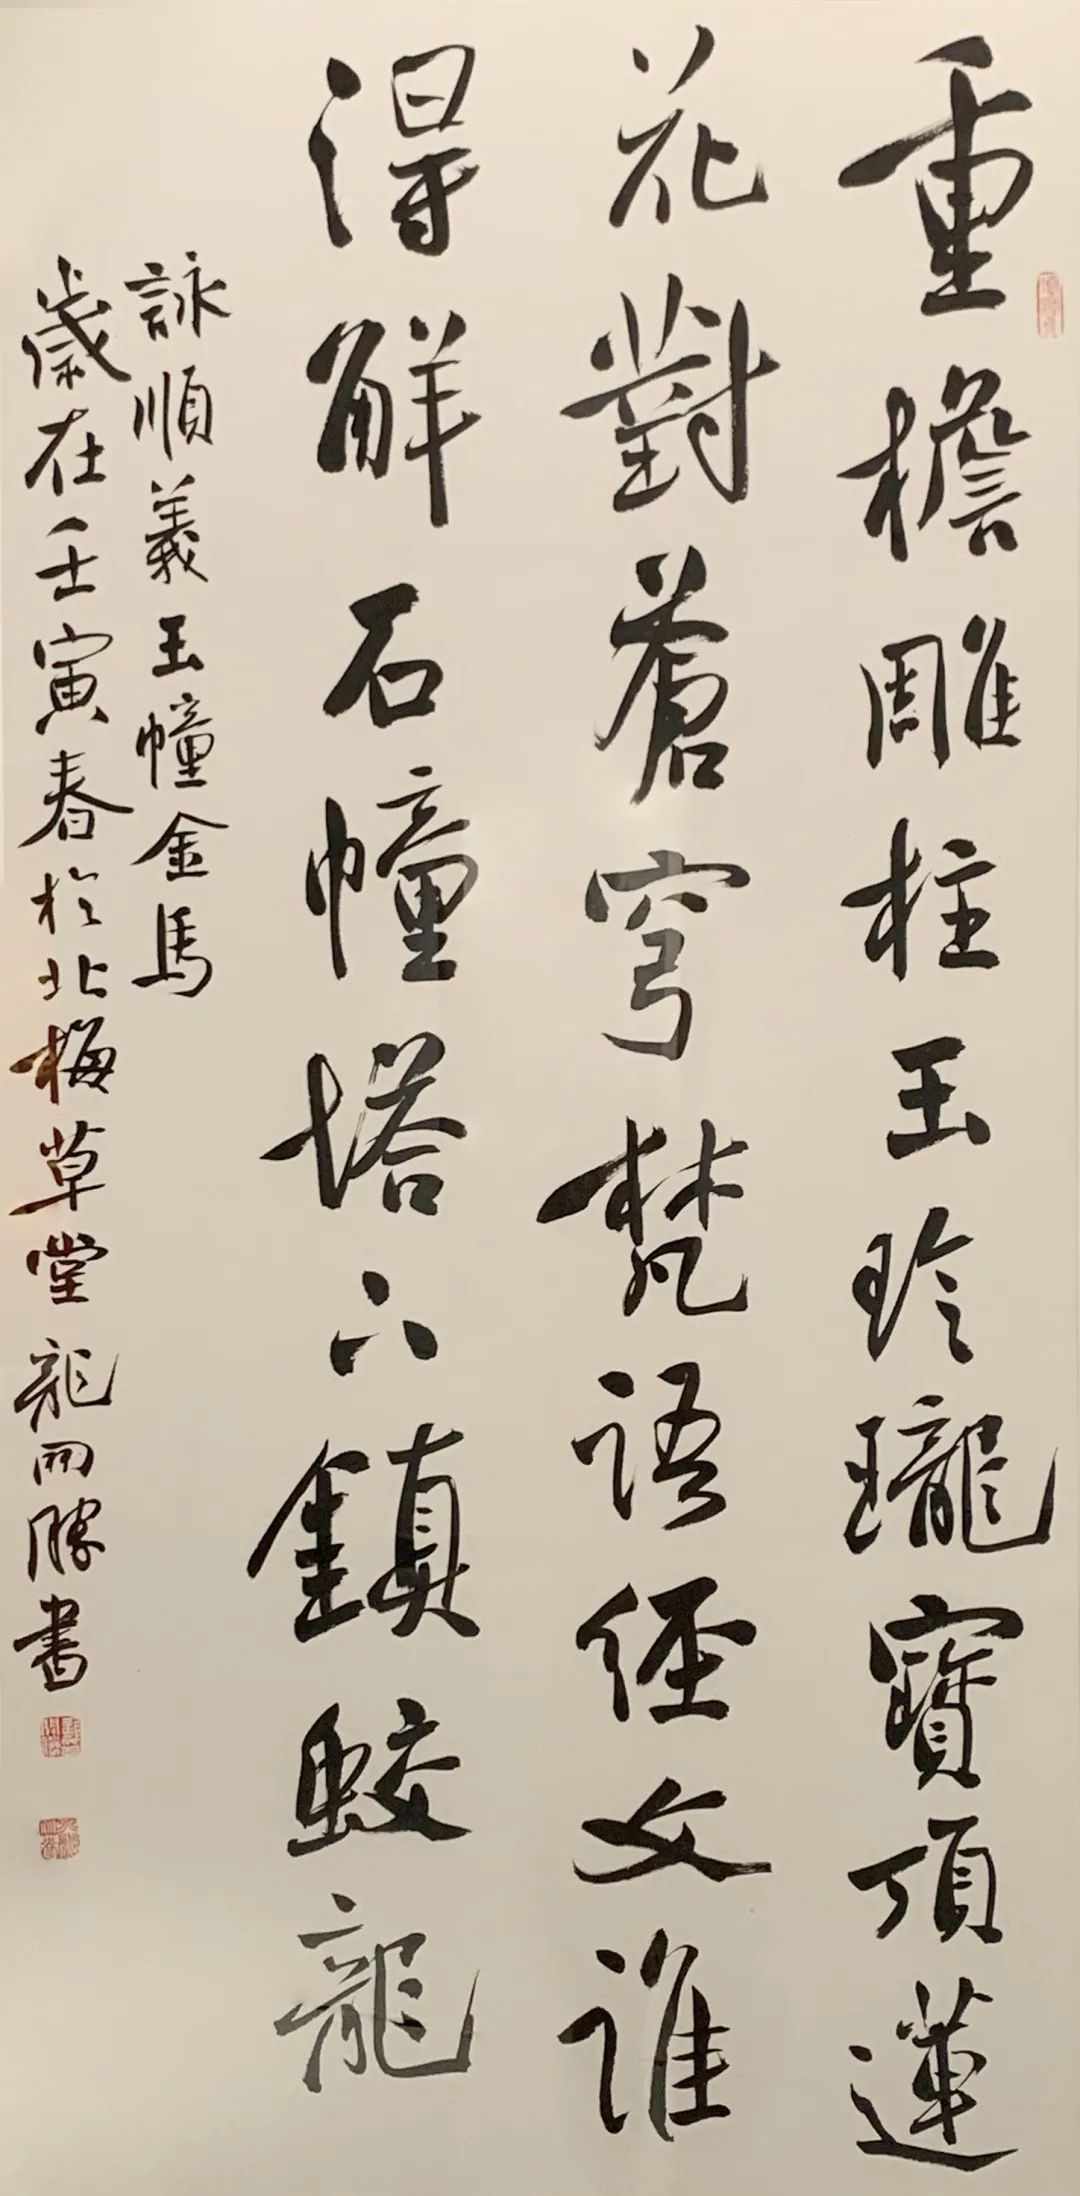 重檐雕柱玉玲瓏寶頂蓮
花對蒼穹梵語經文誰
得解石幢塔下鎮蛟龍
詠順義玉幢金馬
歲在壬寅春於北梅草堂龍開勝書